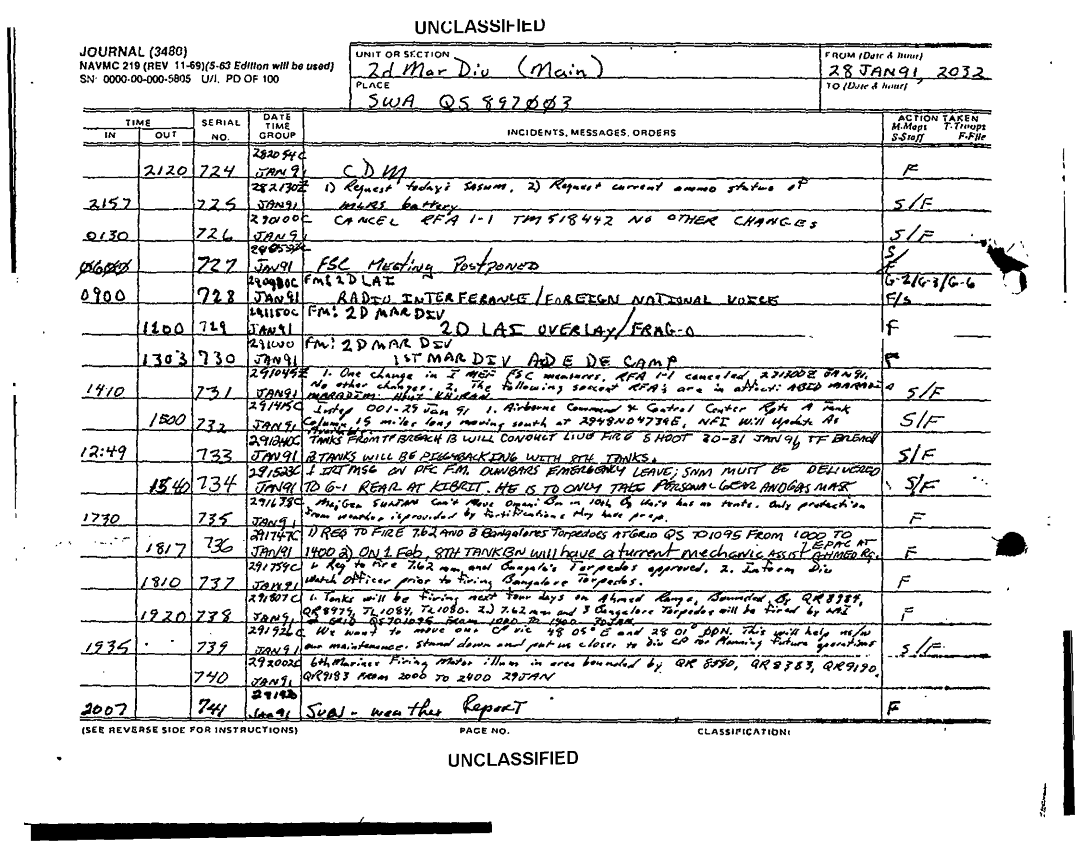 UNCLASSIFIED
JOURNAL (3480)
NAVMC 219 (REV 11-69)(5-63 Edition will be used)
SN: 0000-00-000-5805 U/I. PD OF 100
UNIT OR SECTION
2d Mar Div (Main)
PLACE
SWA QS 897003
FROM (Date & hour)
28 JAN 91, 2032
TO (Date & hour)
TIME
IN OUT
SERIAL NO.
DATE TIME GROUP
INCIDENTS, MESSAGES, ORDERS
ACTION TAKEN
M-Maps T-Troops
S-Staff F-File
2120 724 JAN 91 CDM F
282130Z 1) Request today's sosum, 2) Request current ammo status of
2157 725 JAN91 MLRS battery S/F
290100C CANCEL RFA 1-1 TM518442 NO OTHER CHANGES
0130 726 JAN91 S/F
S/
727 JAN91 FSC Meeting Postponed F
FM: 2D LAI G-2/G-3/G-6
0900 728 JAN91 RADIO INTERFERANCE/FOREIGN NATIONAL VOICE F/S
291150C FM: 2D MAR DIV
1200 729 JAN91 2D LAI OVERLAY/FRAG-O F
FM: 2D MAR DIV
1303 730 JAN91 1ST MAR DIV ADE DE CAMP F
291045Z 1. One change in I MEF FSC measures, RFA 1-1 canceled, 291200Z JAN91.
No other changes. 2. The following special RFA's are in affect: ABID
1410 731 JAN91 S/F
291415C Intep 001-29 Jan 91 1. Airborne Command & Control Center Rpts A Tank
1500 732 JAN91 Column 15 miles long moving south at 2848N04739E, NFI Will Update As S/F
Available
291240C TANKS FROM TF BREACH B WILL CONDUCT LIVE FIRE SHOOT 30-31 JAN 91 TF BREACH
12:49 733 JAN91 B TANKS WILL BE PIGGYBACKING WITH 8TH TANKS. S/F
291523C 1 IRT MSG ON PFC F.M. DUNBARS EMERGENCY LEAVE; SNM MUST BE DELIVERED
1540 734 JAN91 TO G-1 REAR AT KIBRIT. HE IS TO ONLY TAKE PERSONAL GEAR AND GAS MASK S/F
291638C Maj Gen SULTAN Can't Move on 10th Bg this has no tents. Only protection
1730 735 JAN91 from weather is provided by fortifications they have prep. F
291747C 1) REQ TO FIRE 7.62 AND 3 Bangalores Torpedoes AT GRID QS 701095 FROM 1000 TO
1817 736 JAN91 1400 2) ON 1 Feb, 8TH TANK BN will have a turrent mechanic ASSIST EPAC AT AHMED RG. F
291759C 1. Req to Fire 7.62 mm, and Bangalo's Torpedos approved. 2. Inform Div
1810 737 JAN91 Watch Officer prior to firing Bangalore Torpedos. F
291807C 1. Tanks will be firing next four days on Ahmed Range, Bounded By QR8989,
QR8979, TL1089, TL1080. 2.) 7.62 mm and 3 Bangalore Torpedos will be fired by
1920 738 JAN91 @ GRID QS701095 FROM 1000 TO 1400 30JAN F
291926C We want to move our CP vic 48 05° E and 28 01° This will help
1935 739 JAN91 our maintenance stand down and put us closer to Div CP for Planning future operations S/F
292002C 6th Marines Firing Motor illum in area bounded by QR 8390, QR8383, QR9190,
740 JAN91 QR9183 FROM 2000 TO 2400 29JAN
2007 741 JAN91 Subj - weather Report F
(SEE REVERSE SIDE FOR INSTRUCTIONS) PAGE NO. CLASSIFICATION:
UNCLASSIFIED